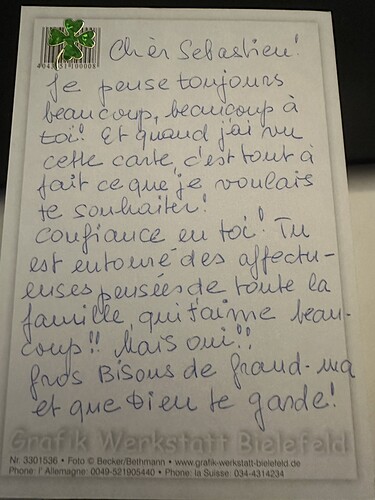 Chèr Sebastien!
Je pense toujours
beaucoup, beaucoup à
toi! Et quand j'ai vu
cette carte, c'est tout à
fait ce que je voulais
te souhaiter!
Confiance en toi! Tu
est entouré des affectu-
euses pensées de toute la
famille, qui t'aime beau-
coup!! Mais oui!!
Gros Bisous de grand-ma
et que Dieu te garde!
Grafik Werkstatt Bielefeld
Nr. 3301536 • Foto © Becker/Bethmann • www.grafik-werkstatt-bielefeld.de
Phone: l' Allemagne: 0049-521905440 • Phone: la Suisse: 034-4314234